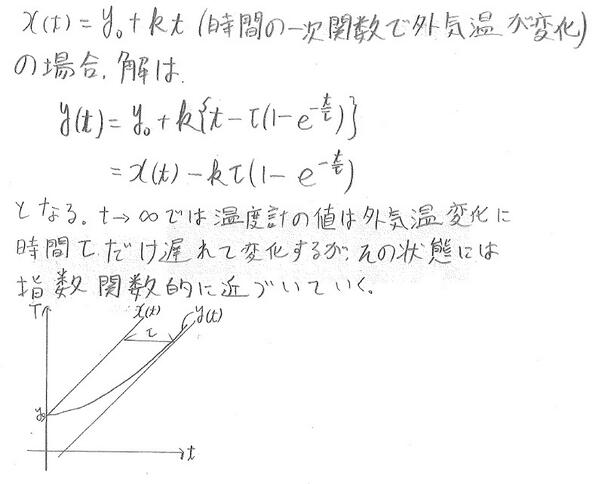 x(t) = y₀ + kt (時間の一次関数で外気温が変化)
の場合、解は、
y(t) = y₀ + k{t - τ(1 - e^{-t/τ})}
= x(t) - kτ(1 - e^{-t/τ})
となる。t→∞では温度計の値は外気温変化に
時間τだけ遅れて変化するが、その状態には
指数関数的に近づいていく。
T
x(t)
y(t)
τ
y₀
t